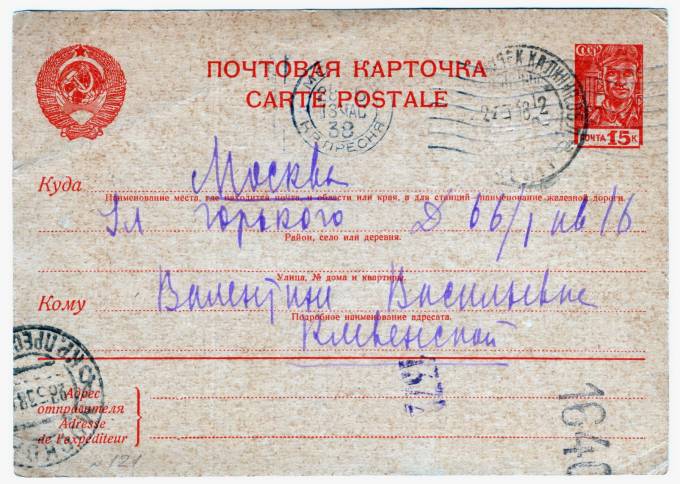 СССР
ПОЧТА 15 К
ПОЧТОВАЯ КАРТОЧКА
CARTE POSTALE
КР. ПРЕСНЯ
38
Куда Москва
Наименование места, где находится почта, и области или края, а для станций наименование железной дороги.
Ул Горького Д 66/1 кв 16
Район, село или деревня.
Улица, № дома и квартиры.
Кому Валентине Васильевне
Подробное наименование адресата.
1640
Адрес
отправителя
Adresse
de l'expéditeur
№ 121